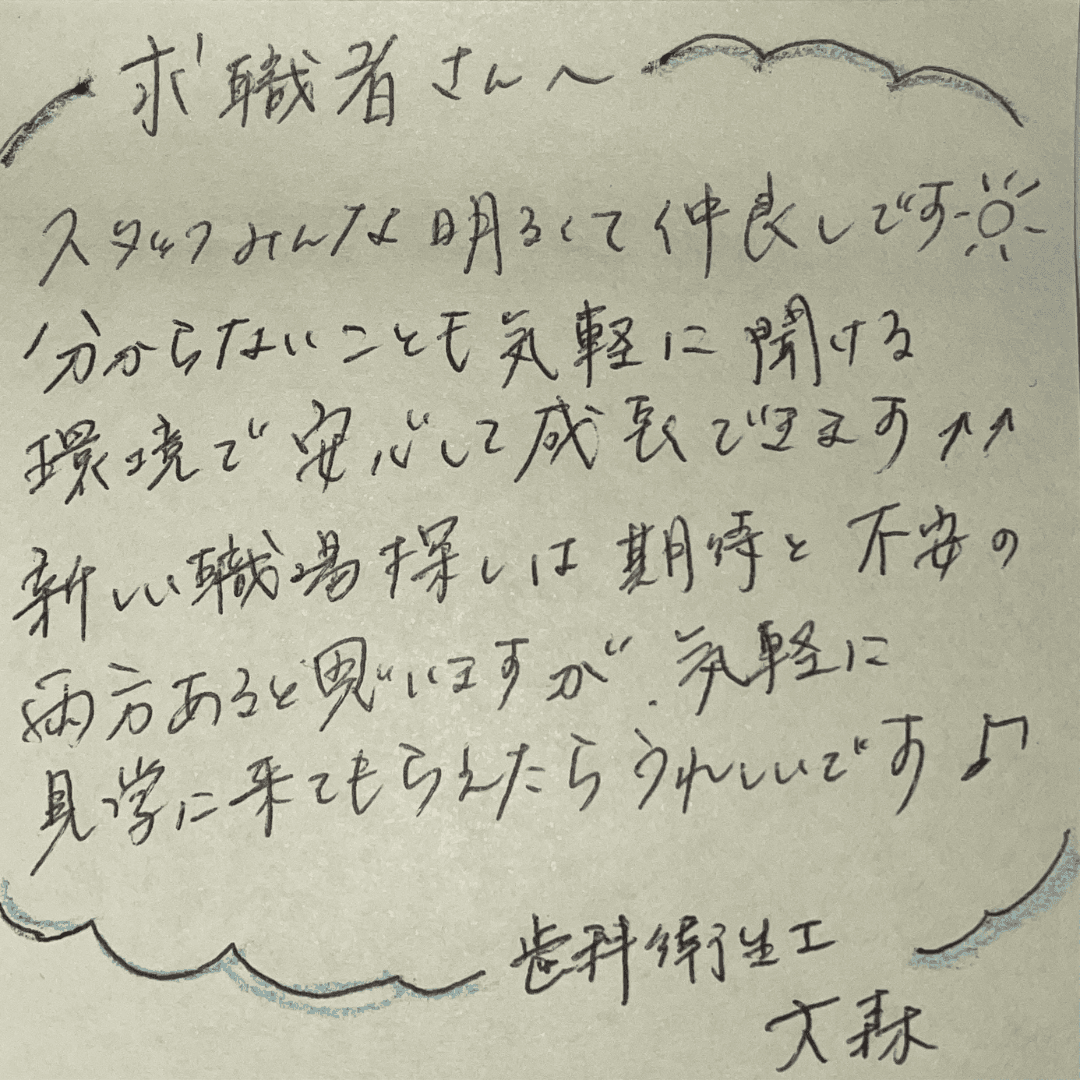 求職者さんへ
スタッフみんな明るくて仲良しです
分からないことも気軽に聞ける
環境で安心して成長できます↑↑
新しい職場探しは期待と不安の
両方あると思いますが、気軽に
見学に来てもらえたらうれしいです♪
歯科衛生士
大森